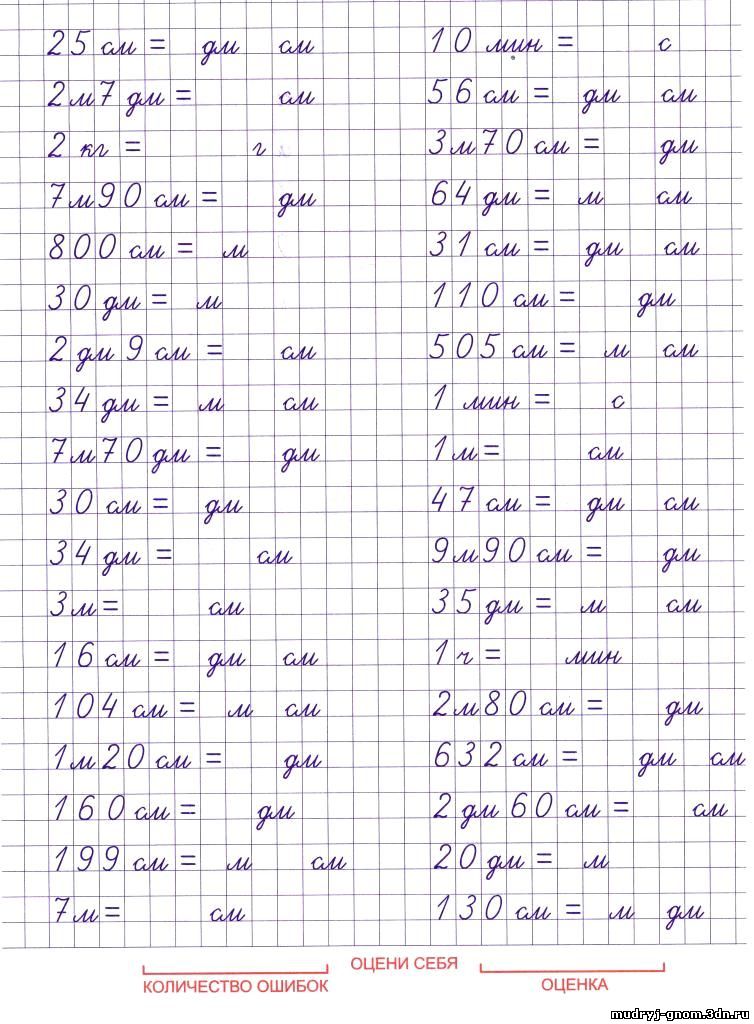 25 см = дм см
2 м 7 дм = см
2 кг = г
7 м 90 см = дм
800 см = м
30 дм = м
2 дм 9 см = см
34 дм = м см
7 м 70 дм = дм
30 см = дм
34 дм = см
3 м = см
16 см = дм см
104 см = м см
1 м 20 см = дм
160 см = дм
199 см = м см
7 м = см
10 мин = с
56 см = дм см
3 м 70 см = дм
64 дм = м см
31 см = дм см
110 см = дм
505 см = м см
1 мин = с
1 м = см
47 см = дм см
9 м 90 см = дм
35 дм = м см
1 ч = мин
2 м 80 см = дм
632 см = дм см
2 дм 60 см = см
20 дм = м
130 см = м дм
ОЦЕНИ СЕБЯ
КОЛИЧЕСТВО ОШИБОК
ОЦЕНКА
mudryj-gnom.3dn.ru